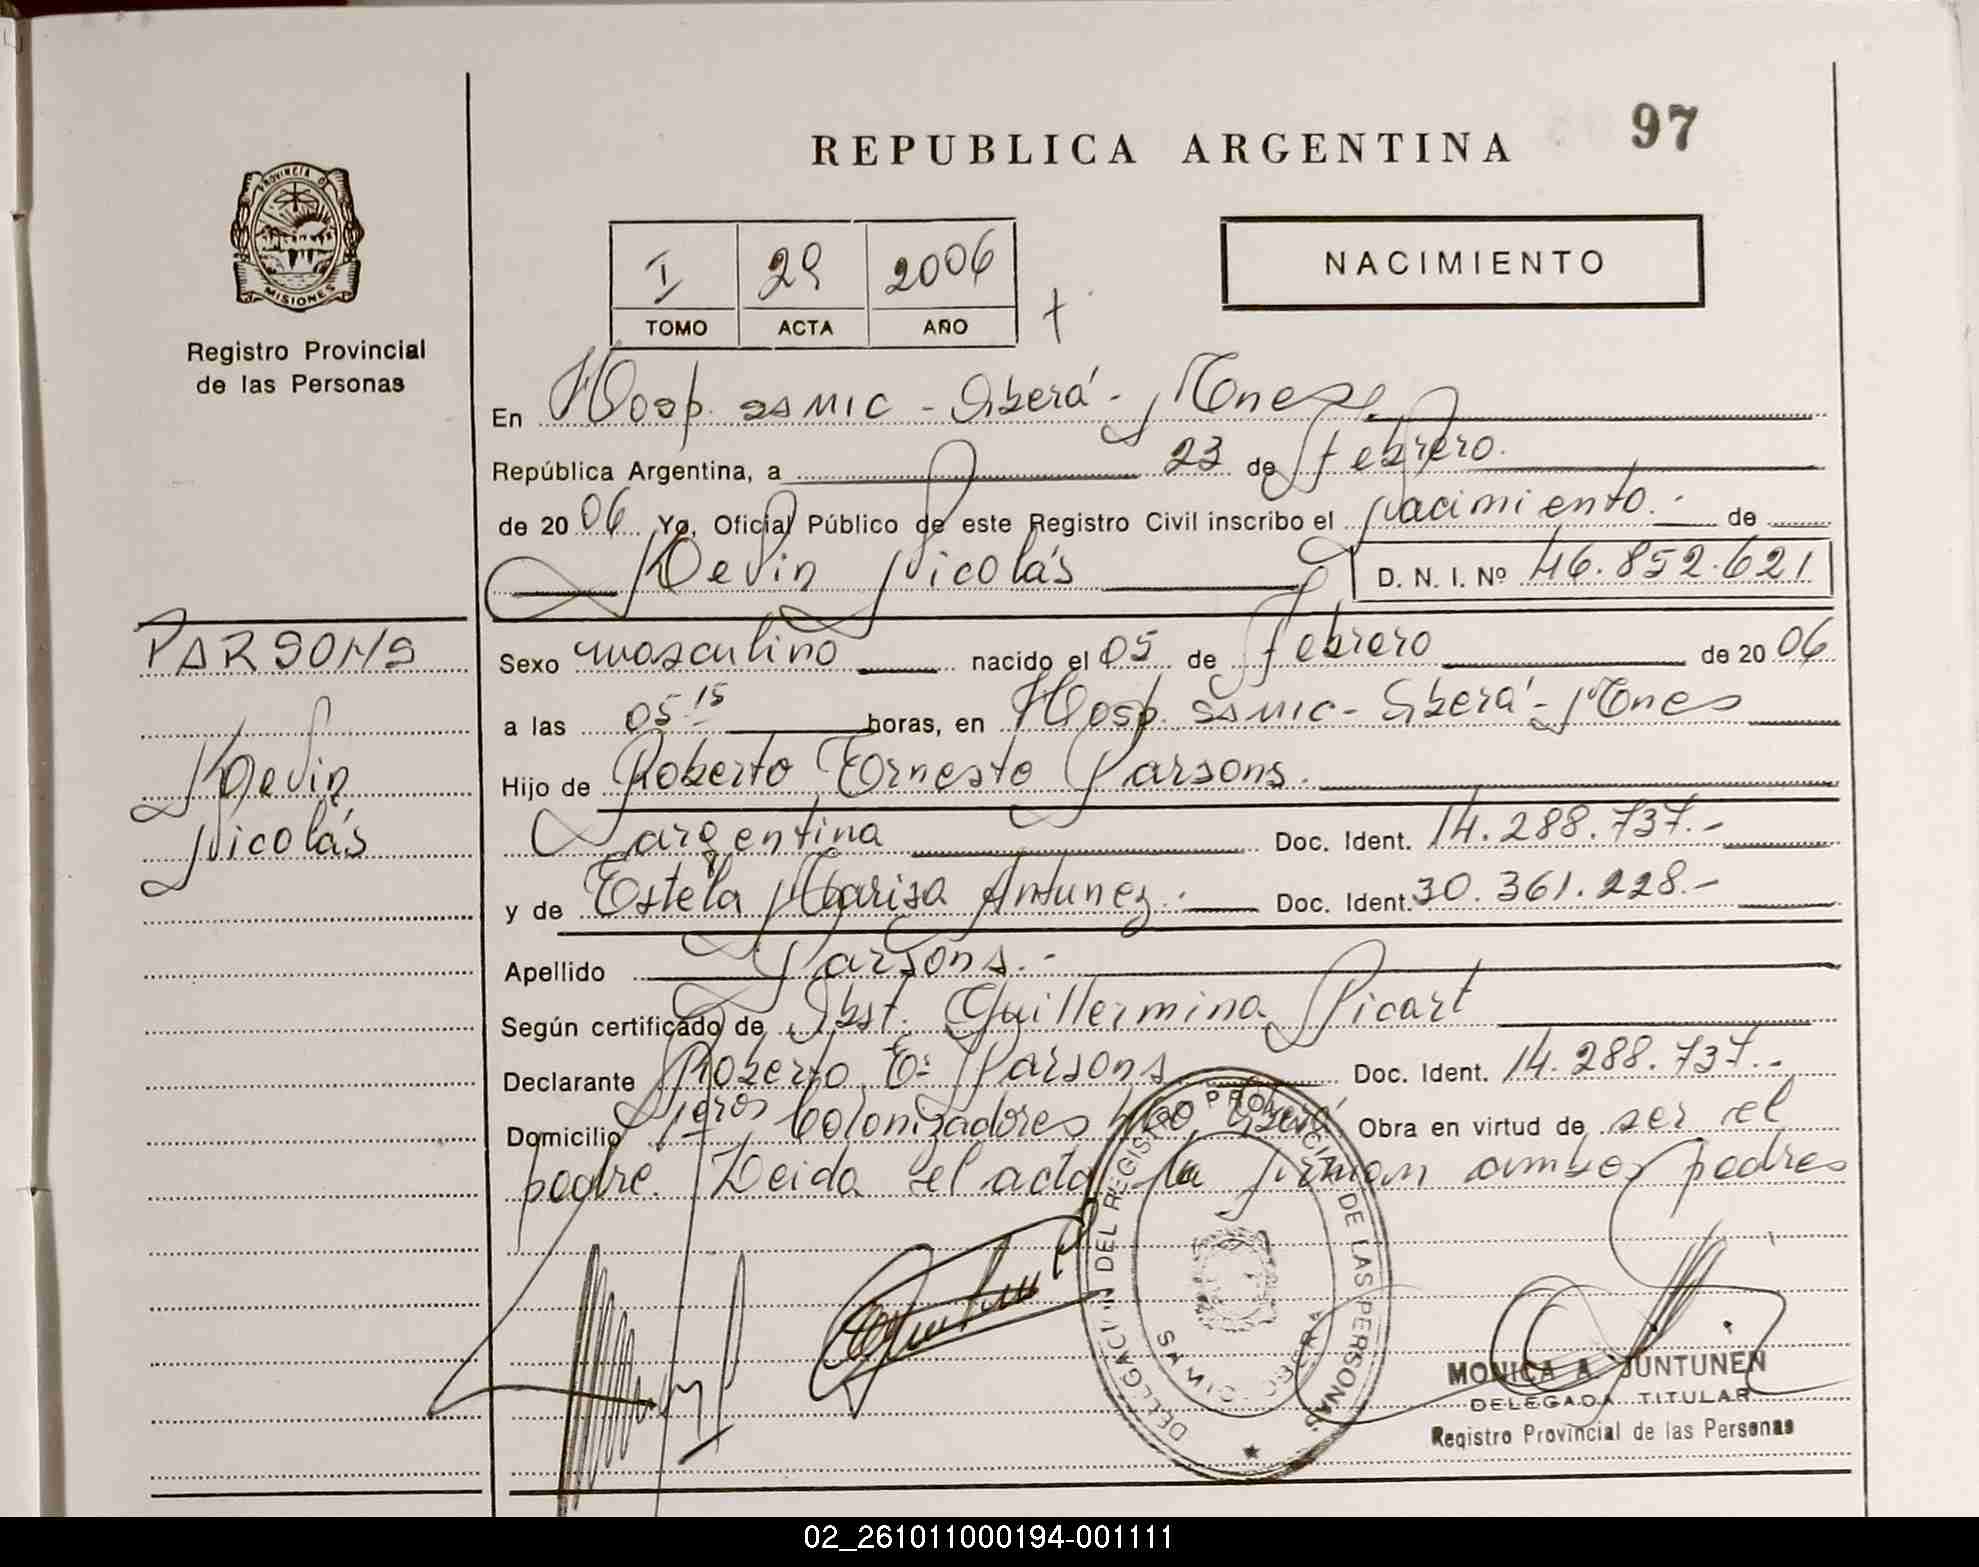 97
REPUBLICA ARGENTINA
PROVINCIA DE
MISIONES
Registro Provincial
de las Personas
I 29 2006
TOMO ACTA AÑO
NACIMIENTO
En Hosp. SAMIC - Oberá - Mnes.
República Argentina, a 23 de febrero.
de 20 06 Yo, Oficial Público de este Registro Civil inscribo el Nacimiento.- de
Kevin Nicolás D. N. I. Nº 46.852.621
PARSONS
Kevin
Nicolás
Sexo masculino nacido el 05 de febrero de 20 06
a las 05.15 horas, en Hosp. SAMIC - Oberá - Mnes
Hijo de Roberto Ernesto Parsons.
argentina Doc. Ident. 14.288.737.-
y de Estela Marisa Antunez.- Doc. Ident. 30.361.228.-
Apellido Parsons.-
Según certificado de Obst. Guillermina Picart
Declarante Roberto E. Parsons Doc. Ident. 14.288.737.-
Domicilio 1eros Colonizadores Oberá Obra en virtud de ser el
padre. Leida el acta la firman ambos padres
DEL REGISTRO PROVINCIAL DE LAS PERSONAS
MONICA A. JUNTUNEN
DELEGADA TITULAR
Registro Provincial de las Personas
02_261011000194-001111